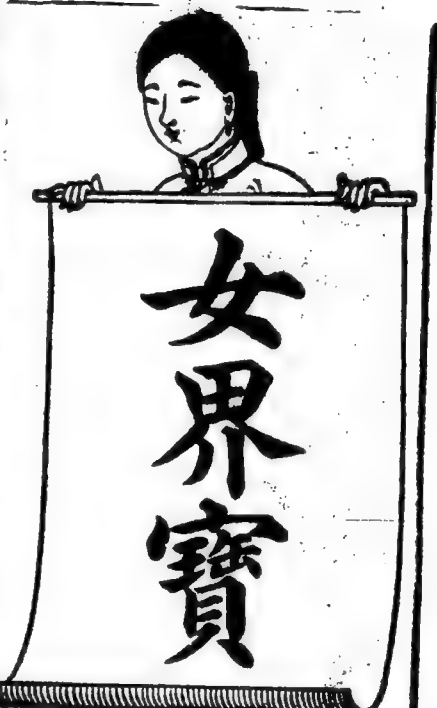 女界寶